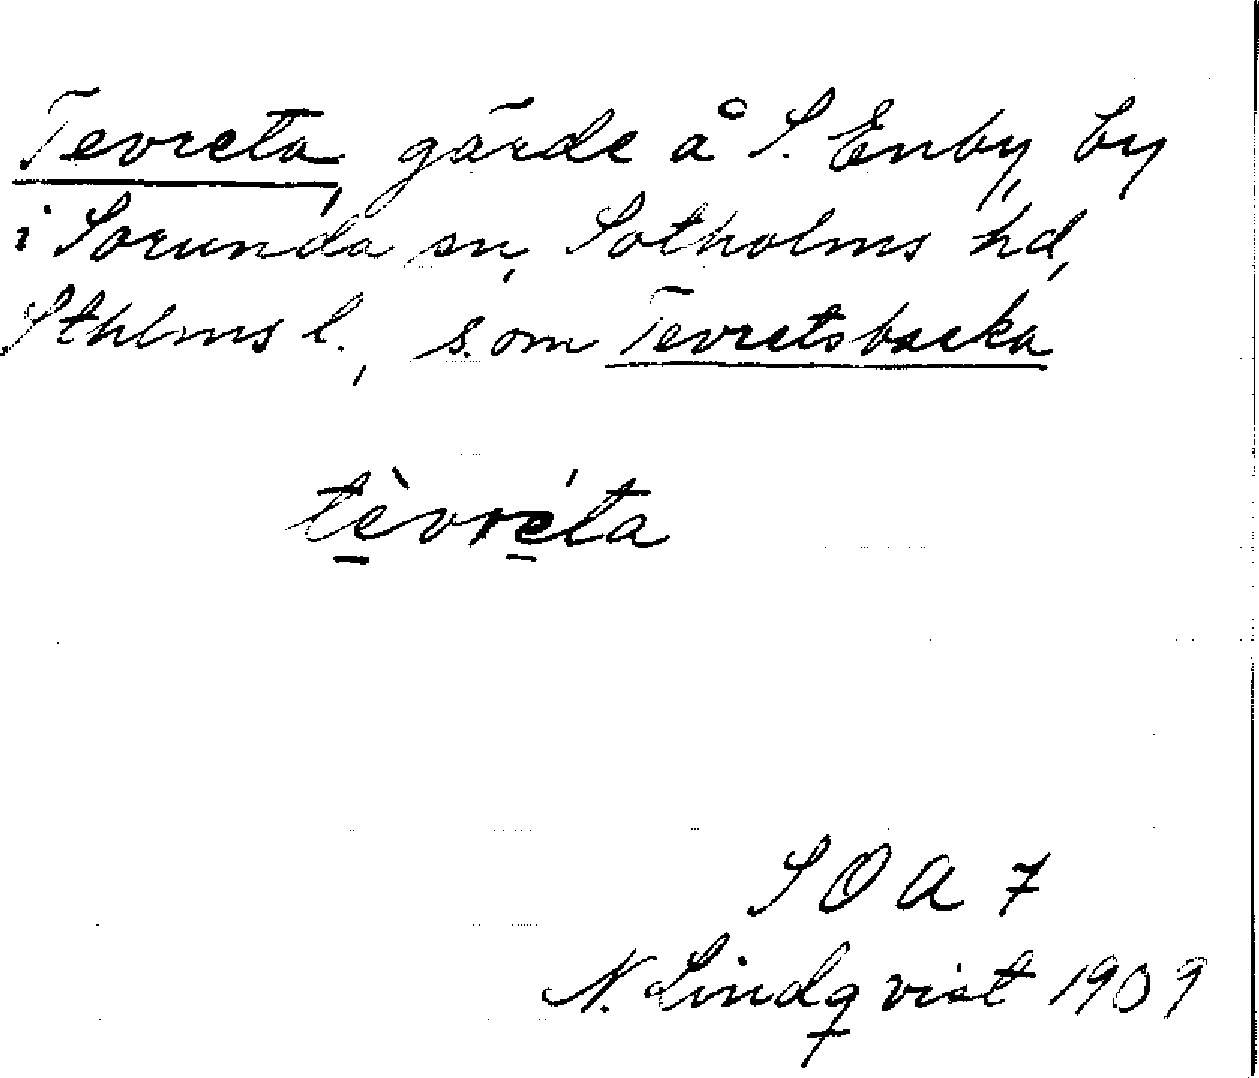 Tevreta, gärde å S. Enby, by
i Sorunda sn, Sotholms hd,
Sthlms l., s. om Tevretsbacka
tèvréta
SOA 7
N. Lindqvist 1909